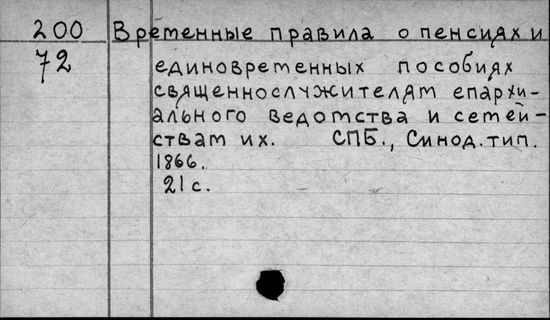 200 Временные правила о пенсиях и
72 единовременных пособиях
священнослужителям епархи-
ального ведомства и семей-
ствам их. СПБ., Синод. тип.
1866.
21 с.